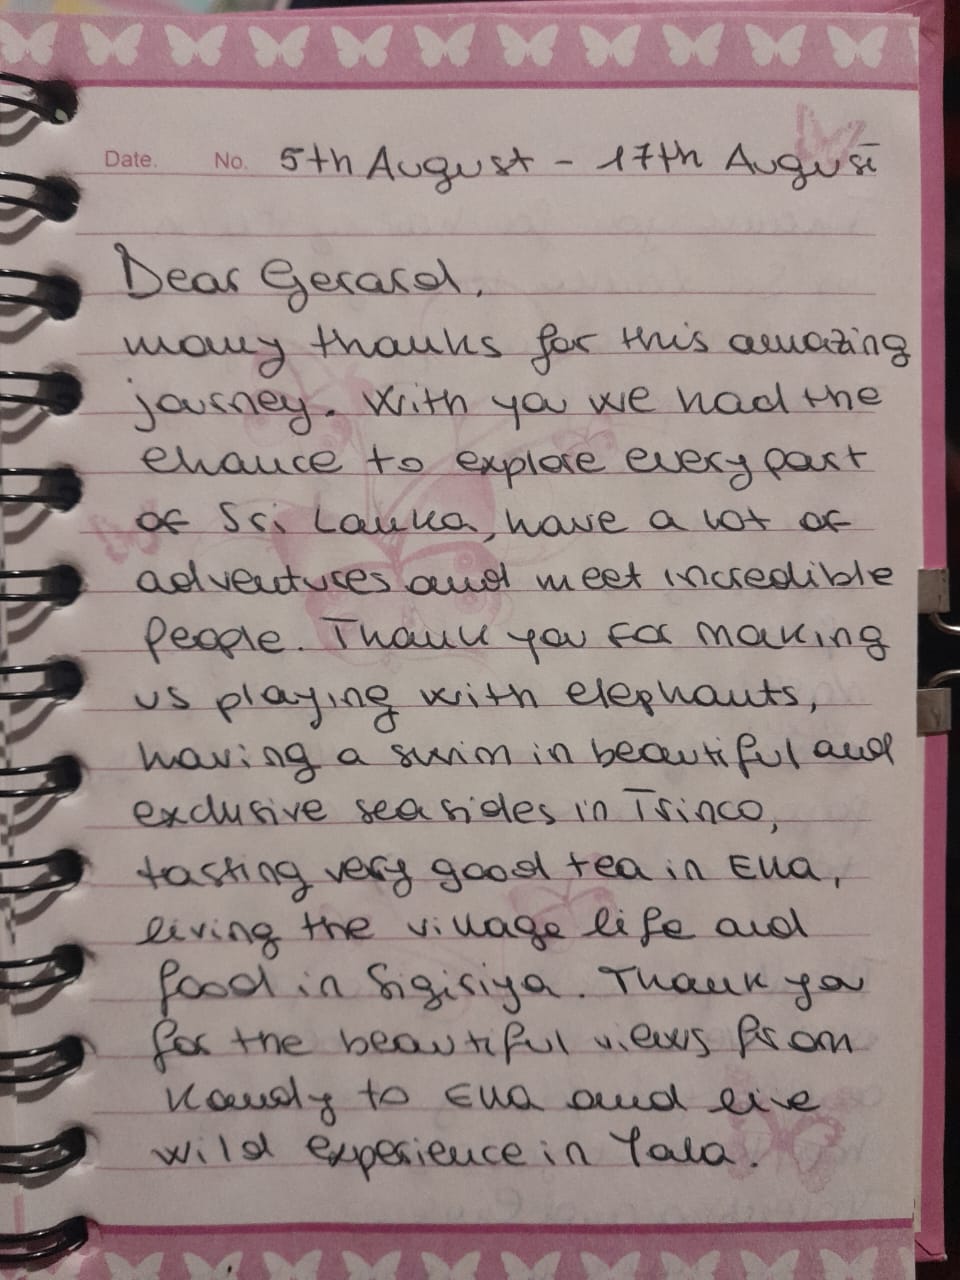 Date. No. 5th August - 17th August
Dear Gerard,
many thanks for this amazing
journey. With you we had the
chance to explore every part
of Sri Lanka, have a lot of
adventures and meet incredible
people. Thank you for making
us playing with elephants,
having a swim in beautiful and
exclusive sea sides in Trinco,
tasting very good tea in Ella,
living the village life and
food in Sigiriya. Thank you
for the beautiful views from
Kandy to Ella and live
wild experience in Yala.